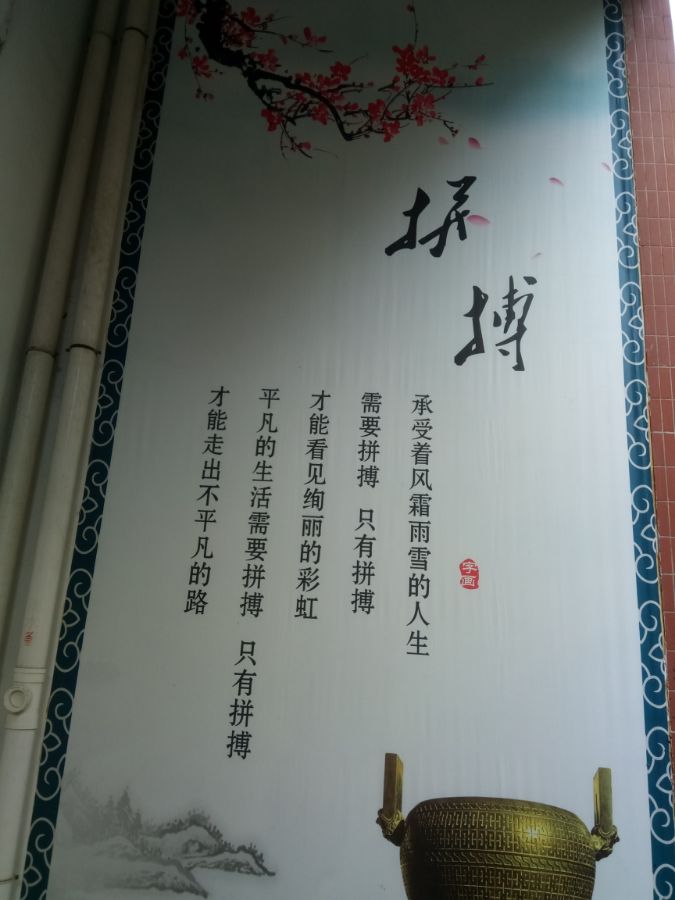 拼搏
承受着风霜雨雪的人生
需要拼搏 只有拼搏
才能看见绚丽的彩虹
平凡的生活需要拼搏 只有拼搏
才能走出不平凡的路
字画